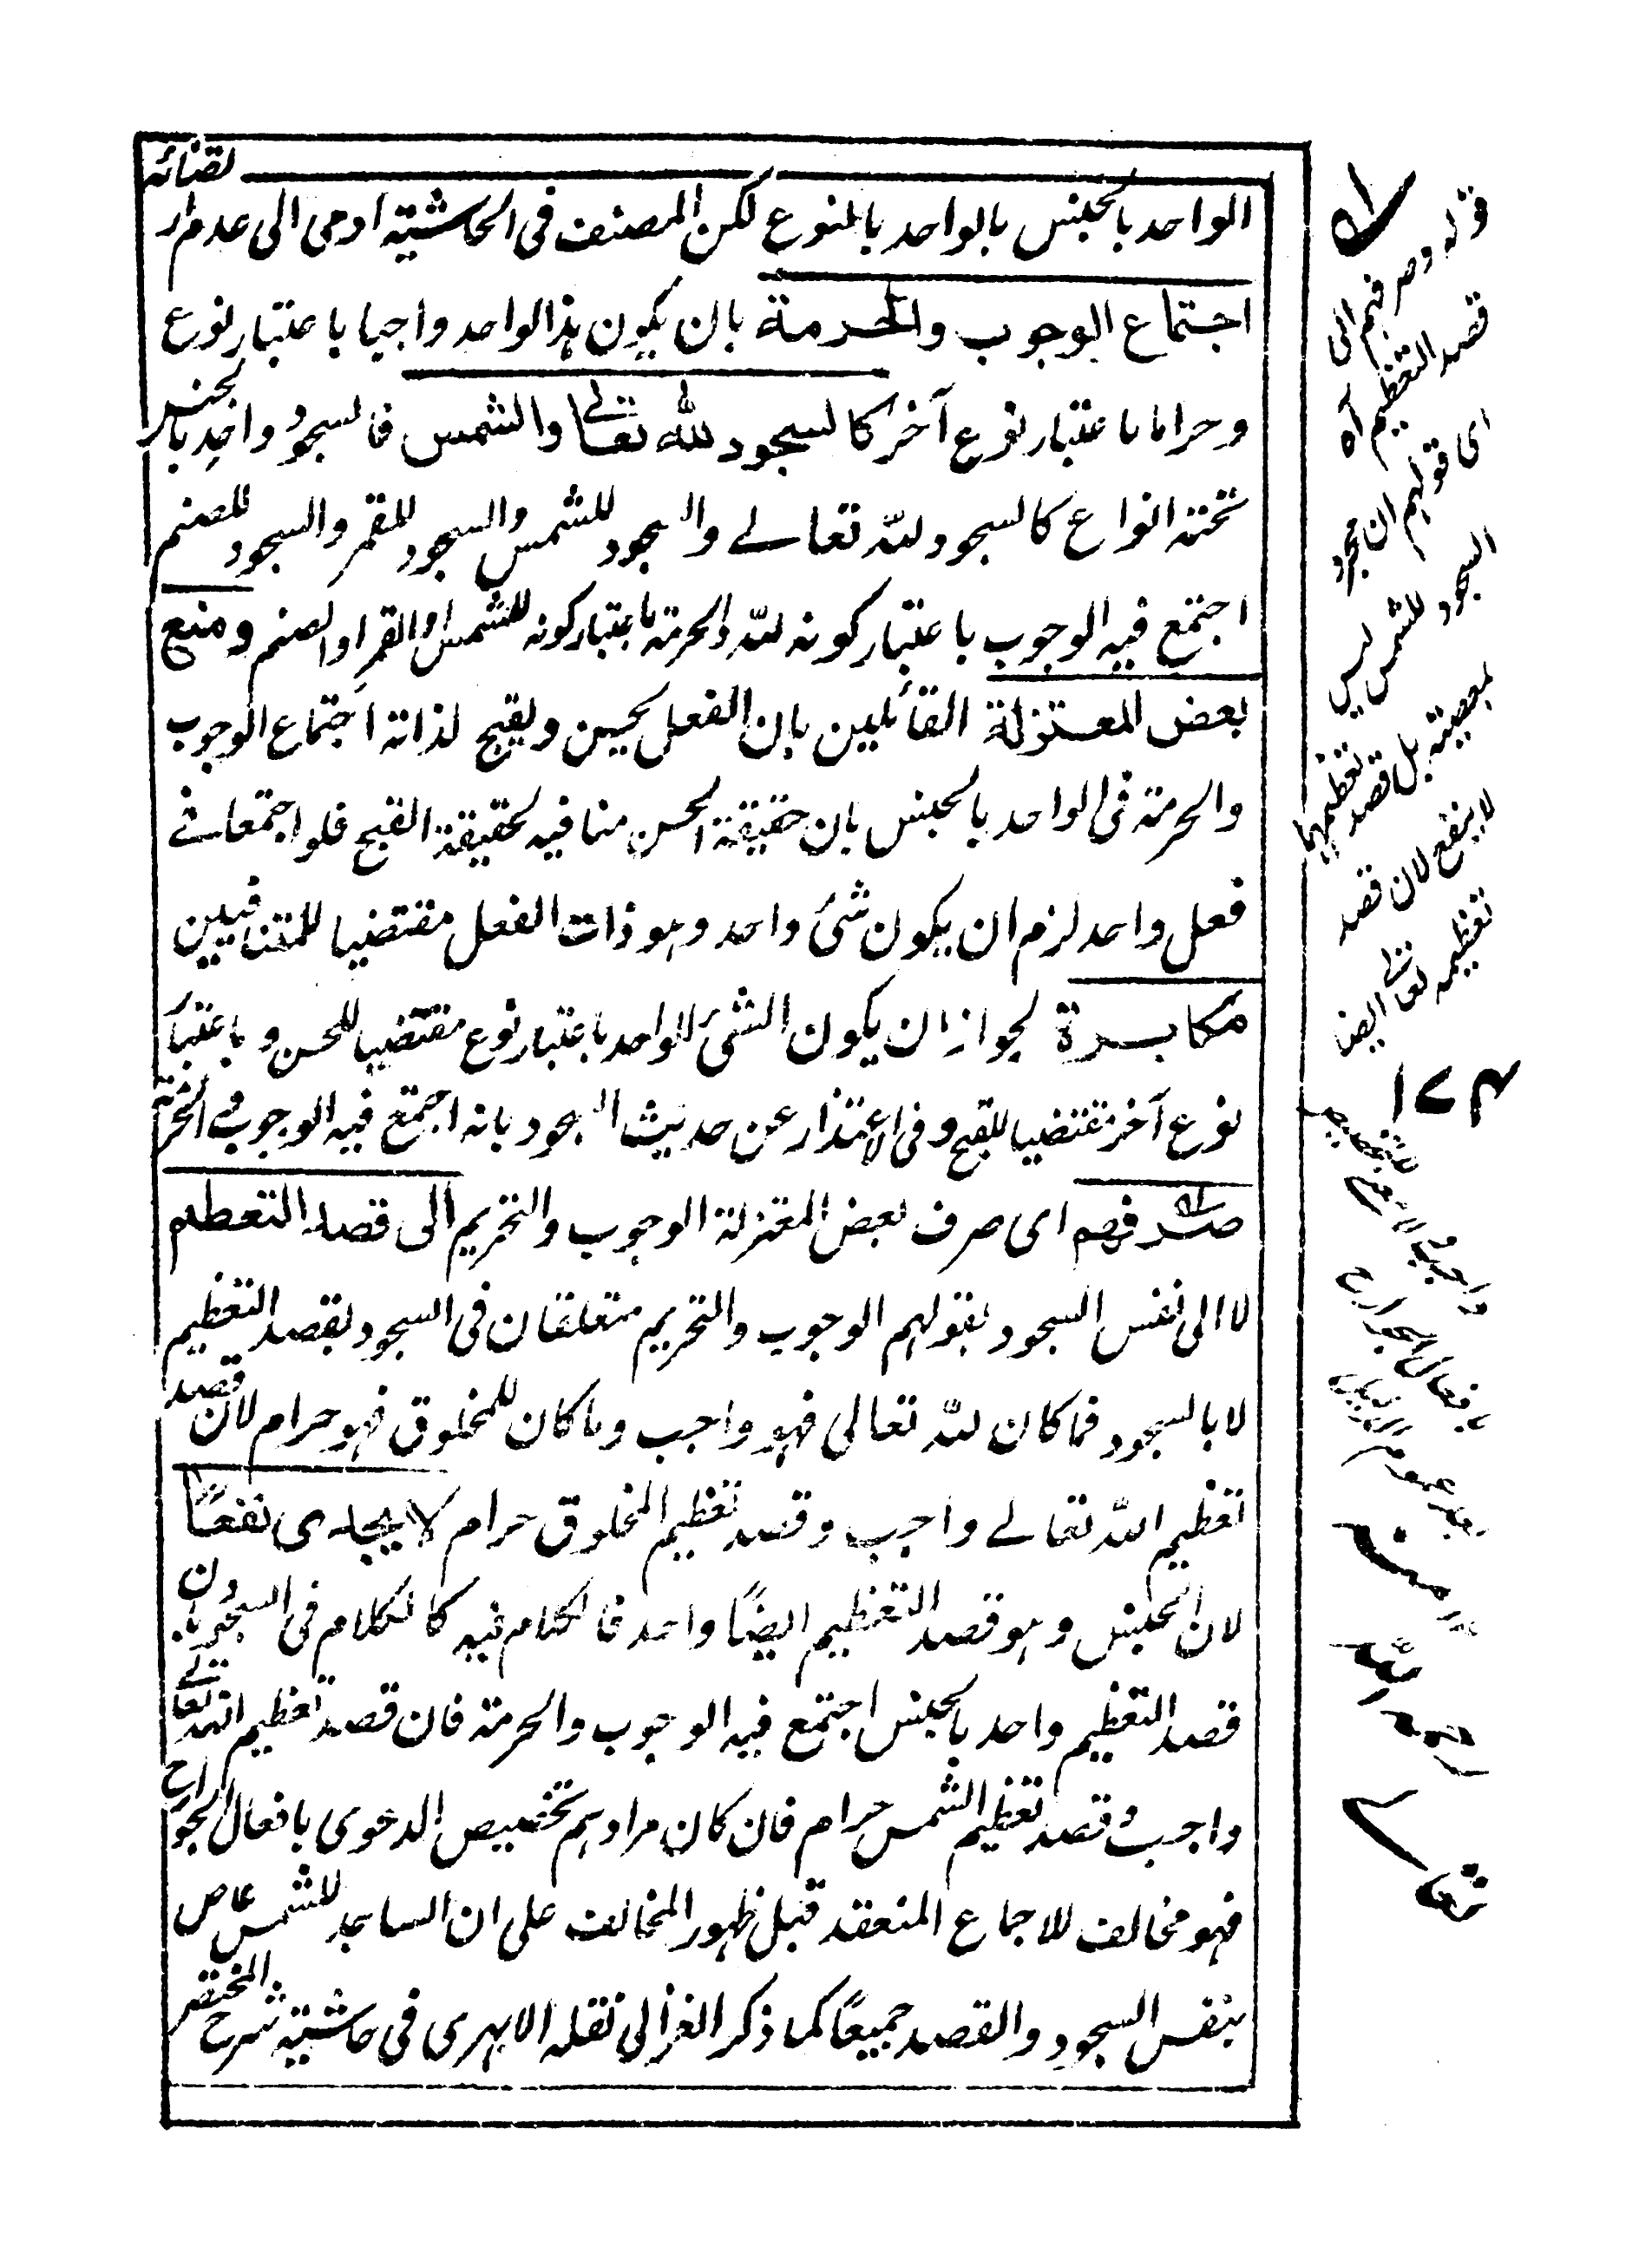 الواحد بالجنس بالواحد بالنوع لكن المصنف فى الحاشية اومى الى عدم ار
تضائه
اجتماع الوجوب والحرمة بان يكون هذا الواحد واجبا باعتبار نوع
وحراما باعتبار نوع آخر كالسجود لله تعالى والشمس فالسجود واحد بالجنس
تحته انواع كالسجود لله تعالے والسجود للشمس والسجود للقمر والسجود للصنم
اجتمع فيه الوجوب باعتبار كونه لله والحرمة باعتبار كونه للشمس او القمر او الصنم ومنع
بعض المعتزلة القائلين بان الفعل يحسن ويقبح لذاته اجتماع الوجوب
والحرمة فى الواحد بالجنس بان حقيقة الحسن منافيه لحقيقة القبح فلو اجتمعا فے
فعل واحد لزم ان يكون شئ واحد وهو ذات الفعل مقتضيا للمتنافيين
مكابرة لجواز ان يكون الشئ الواحد باعتبار نوع مقتضيا للحسن وباعتبار
نوع آخر مقتضيا للقبح وفى الاعتذار عن حديث السجود بانه اجتمع فيه الوجوب والحرمة
صرفهم اى صرف بعض المعتزلة الوجوب والتحريم الى قصد التعظيم
لا الى نفس السجود بقولهم الوجوب والتحريم متعلقان فى السجود بقصد التعظيم
لا بالسجود فما كان لله تعالى فهو واجب وما كان للمخلوق فهو حرام لان قصد
تعظيم الله تعالے واجب وقصد تعظيم المخلوق حرام لا يجدى نفعًا
لان الجنس وهو قصد التعظيم ايضًا واحد فالكلام فيه كالكلام فى السجود بان
قصد التعظيم واحد بالجنس اجتمع فيه الوجوب والحرمة فان قصد تعظيم الله تعالے
واجب وقصد تعظيم الشمس حرام فان كان مرادهم تخصيص الدعوى بافعال الجوارح
فهو مخالف للاجماع المنعقد قبل ظهور المخالف على ان الساجد للشمس عاص
بنفس السجود والقصد جميعًا كما ذكر الغزالى نقله الابهرى فى حاشية شرح المختصر
قوله وصرفهم الى
قصد التعظيم آه
اى قولهم ان مجرد
السجود للشمس ليس
بمعصية بل قصد تعظيمها
لا ينفع لان قصد
تعظيمه تعالے ايضا